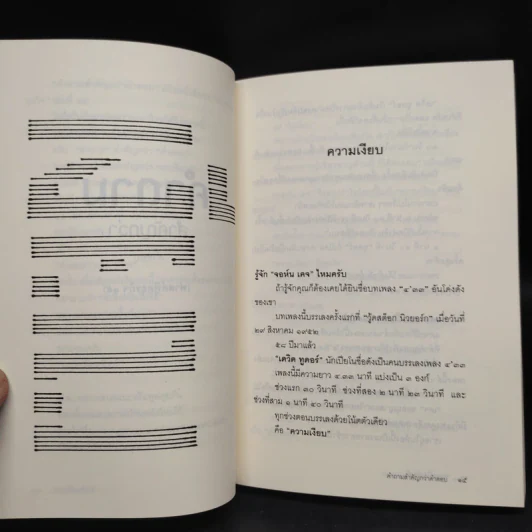 ความเงียบ
รู้จัก "จอห์น เคจ" ไหมครับ
ถ้ารู้จักคุณก็ต้องเคยได้ยินชื่อบทเพลง "๔'๓๓" อันโด่งดัง
ของเขา
บทเพลงนี้บรรเลงครั้งแรกที่ "วู้ดสต็อก นิวยอร์ก" เมื่อวันที่
๒๙ สิงหาคม ๑๙๕๒
๕๘ ปีมาแล้ว
"เดวิด ทูดอร์" นักเปียโนชื่อดังเป็นคนบรรเลงเพลง ๔'๓๓
เพลงนี้มีความยาว ๔.๓๓ นาที แบ่งเป็น ๓ องก์
ช่วงแรก ๓๐ วินาที ช่วงที่สอง ๒ นาที ๒๓ วินาที และ
ช่วงที่สาม ๑ นาที ๔๐ วินาที
ทุกช่วงตอนบรรเลงด้วยโน้ตตัวเดียว
คือ "ความเงียบ"
คำถามสำคัญกว่าคำตอบ